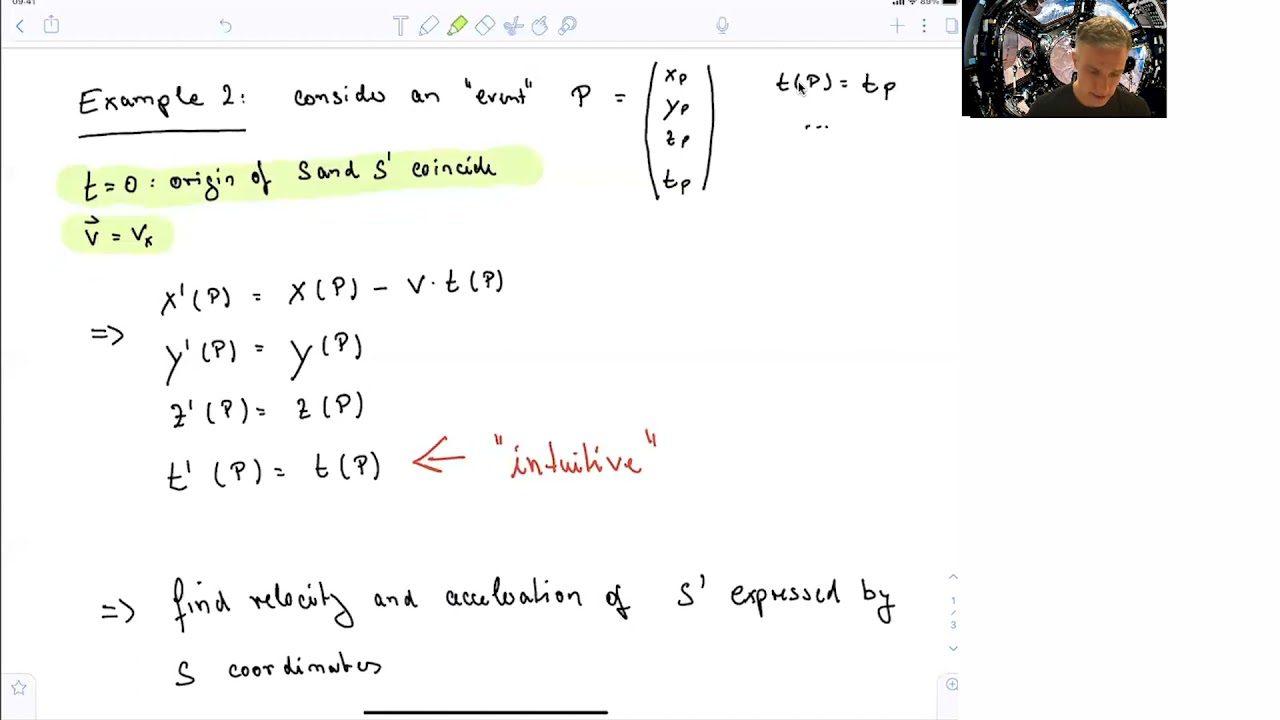 09:41
89%
Example 2: consider an "event" P = (x_P y_P z_P t_P) t(P) = t_P
...
t = 0 : origin of S and S' coincide
v⃗ = v_x
=> x'(P) = x(P) - v · t(P)
y'(P) = y(P)
z'(P) = z(P)
t'(P) = t(P) ← "intuitive"
=> find velocity and acceleration of S' expressed by
S coordinates
1
/
3